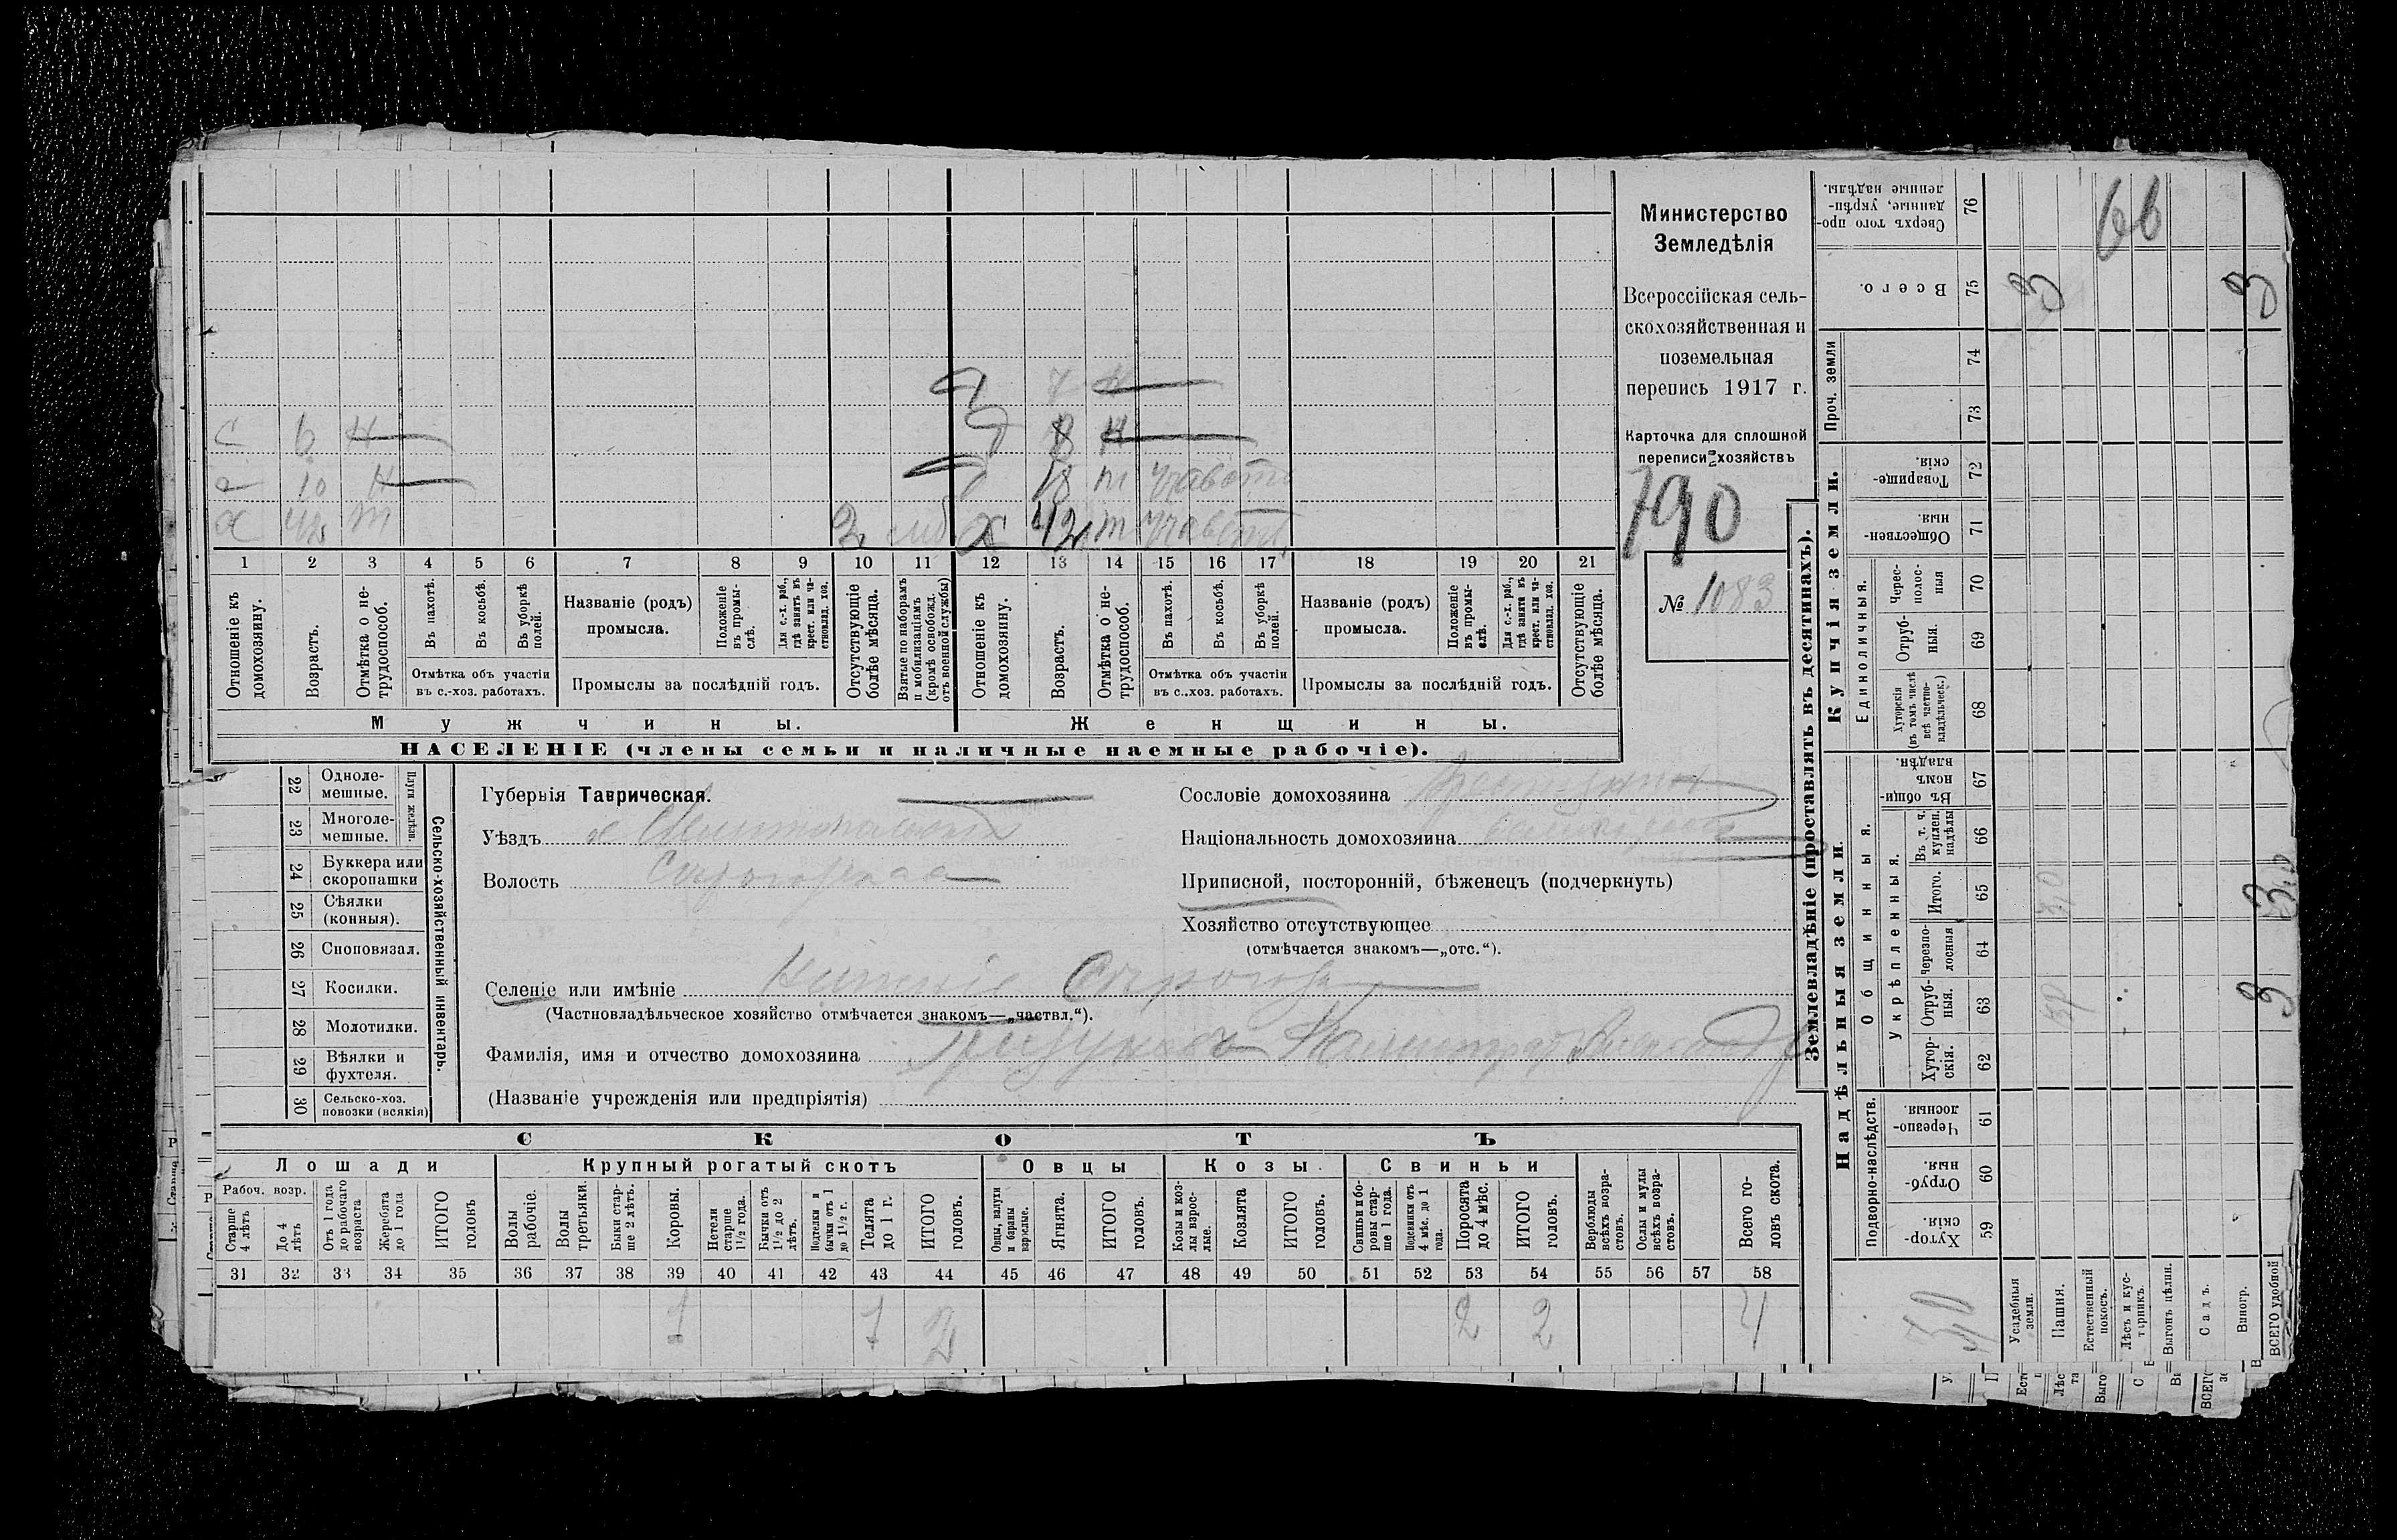 Министерство
Земледѣлія
Всероссійская сель-
скохозяйственная и
поземельная
перепись 1917 г.
Карточка для сплошной
переписи хозяйствъ
790
№ 1083
7 н
с 6 н
8 н
10 н
18 т
х 42 т
2
х 42 т
1 2 3 4 5 6 7 8 9 10 11 12 13 14 15 16 17 18 19 20 21
Отношеніе къ домохозяину.
Возрастъ.
Отмѣтка о не-трудоспособ.
Въ пахотѣ.
Въ косьбѣ.
Въ уборкѣ полей.
Отмѣтка объ участіи въ с.-хоз. работахъ.
Названіе (родъ) промысла.
Положеніе въ промы-слѣ.
Для с.-х. раб., гдѣ занятъ въ крест. или ча-стновлад. хоз.
Промыслы за послѣдній годъ.
Отсутствующіе болѣе мѣсяца.
Взятые по наборамъ и мобилизаціямъ (кромѣ освобожд. отъ военной службы)
Отношеніе къ домохозяину.
Возрастъ.
Отмѣтка о не-трудоспособ.
Въ пахотѣ.
Въ косьбѣ.
Въ уборкѣ полей.
Отмѣтка объ участіи въ с.-хоз. работахъ.
Названіе (родъ) промысла.
Положеніе въ промы-слѣ.
Для с.-х. раб., гдѣ занята въ крест. или ча-стновлад. хоз.
Промыслы за послѣдній годъ.
Отсутствующіе болѣе мѣсяца.
Мужчины. Женщины.
НАСЕЛЕНІЕ (члены семьи и наличные наемные рабочіе).
Сельско-хозяйственный инвентарь.
Плуги желѣзн.
22 Одноле-мешные.
23 Многоле-мешные.
24 Буккера или скоропашки
25 Сѣялки (конныя).
26 Сноповязал.
27 Косилки.
28 Молотилки.
29 Вѣялки и фухтеля.
30 Сельско-хоз. повозки (всякія)
Губернія Таврическая.
Уѣздъ Мелитопольский
Волость Сирогозская
Сословіе домохозяина
Національность домохозяина
Приписной, посторонній, бѣженецъ (подчеркнуть)
Хозяйство отсутствующее
(отмѣчается знакомъ—„отс.“).
Селеніе или имѣніе Нижніе Сирогозы
(Частновладѣльческое хозяйство отмѣчается знакомъ—„частвл.“).
Фамилія, имя и отчество домохозяина
(Названіе учрежденія или предпріятія)
СКОТЪ
Лошади Крупный рогатый скотъ Овцы Козы. Свиньи
Рабоч. возр.
Старше 4 лѣтъ
До 4 лѣтъ
Отъ 1 года до рабочаго возраста
Жеребята до 1 года
ИТОГО головъ
Волы рабочіе.
Волы третьяки.
Быки стар-ше 2 лѣтъ.
Коровы.
Нетели старше 1½ года.
Бычки отъ 1½ до 2 лѣтъ.
Подтелки и бычки отъ 1 до 1½ г.
Телята до 1 г.
ИТОГО головъ.
Овцы, валухи и бараны взрослые.
Ягнята.
ИТОГО головъ.
Козы и коз-лы взрос-лые.
Козлята
ИТОГО головъ.
Свиньи и бо-ровы стар-ше 1 года.
Подсвинки отъ 4 мѣс. до 1 года.
Поросята до 4 мѣс.
ИТОГО головъ.
Верблюды всѣхъ возра-стовъ.
Ослы и мулы всѣхъ возра-стовъ.
Всего го-ловъ скота.
31 32 33 34 35 36 37 38 39 40 41 42 43 44 45 46 47 48 49 50 51 52 53 54 55 56 57 58
1 1 2 2 2 4
Землевладѣніе (проставлять въ десятинахъ).
Купчія земли.
Надѣльныя земли.
Проч. земли
Единоличныя.
Общинныя.
Укрѣпленныя.
Подворно-наслѣдств.
Сверхъ того про-данные, укрѣп-ленные надѣлы. 76
Всего. 75
74
73
Товарище-скія. 72
Обществен-ныя. 71
Черес-полос-ныя 70
Отруб-ныя. 69
Хуторскія (въ томъ числѣ всѣ частно-владѣльческ.) 68
Въ общин-номъ владѣн. 67
Въ т. ч. куплен. надѣлы 66
Итого. 65
Черезпо-лосныя 64
Отруб-ныя. 63
Хутор-скія. 62
Черезпо-лосныя. 61
Отруб-ныя. 60
Хутор-скія. 59
Усадебныя земли.
Пашня.
Естественный покосъ.
Лѣсъ и кус-тарникъ.
Выгонъ цѣлин.
Садъ.
Виногр.
ВСЕГО удобной
66
3
3